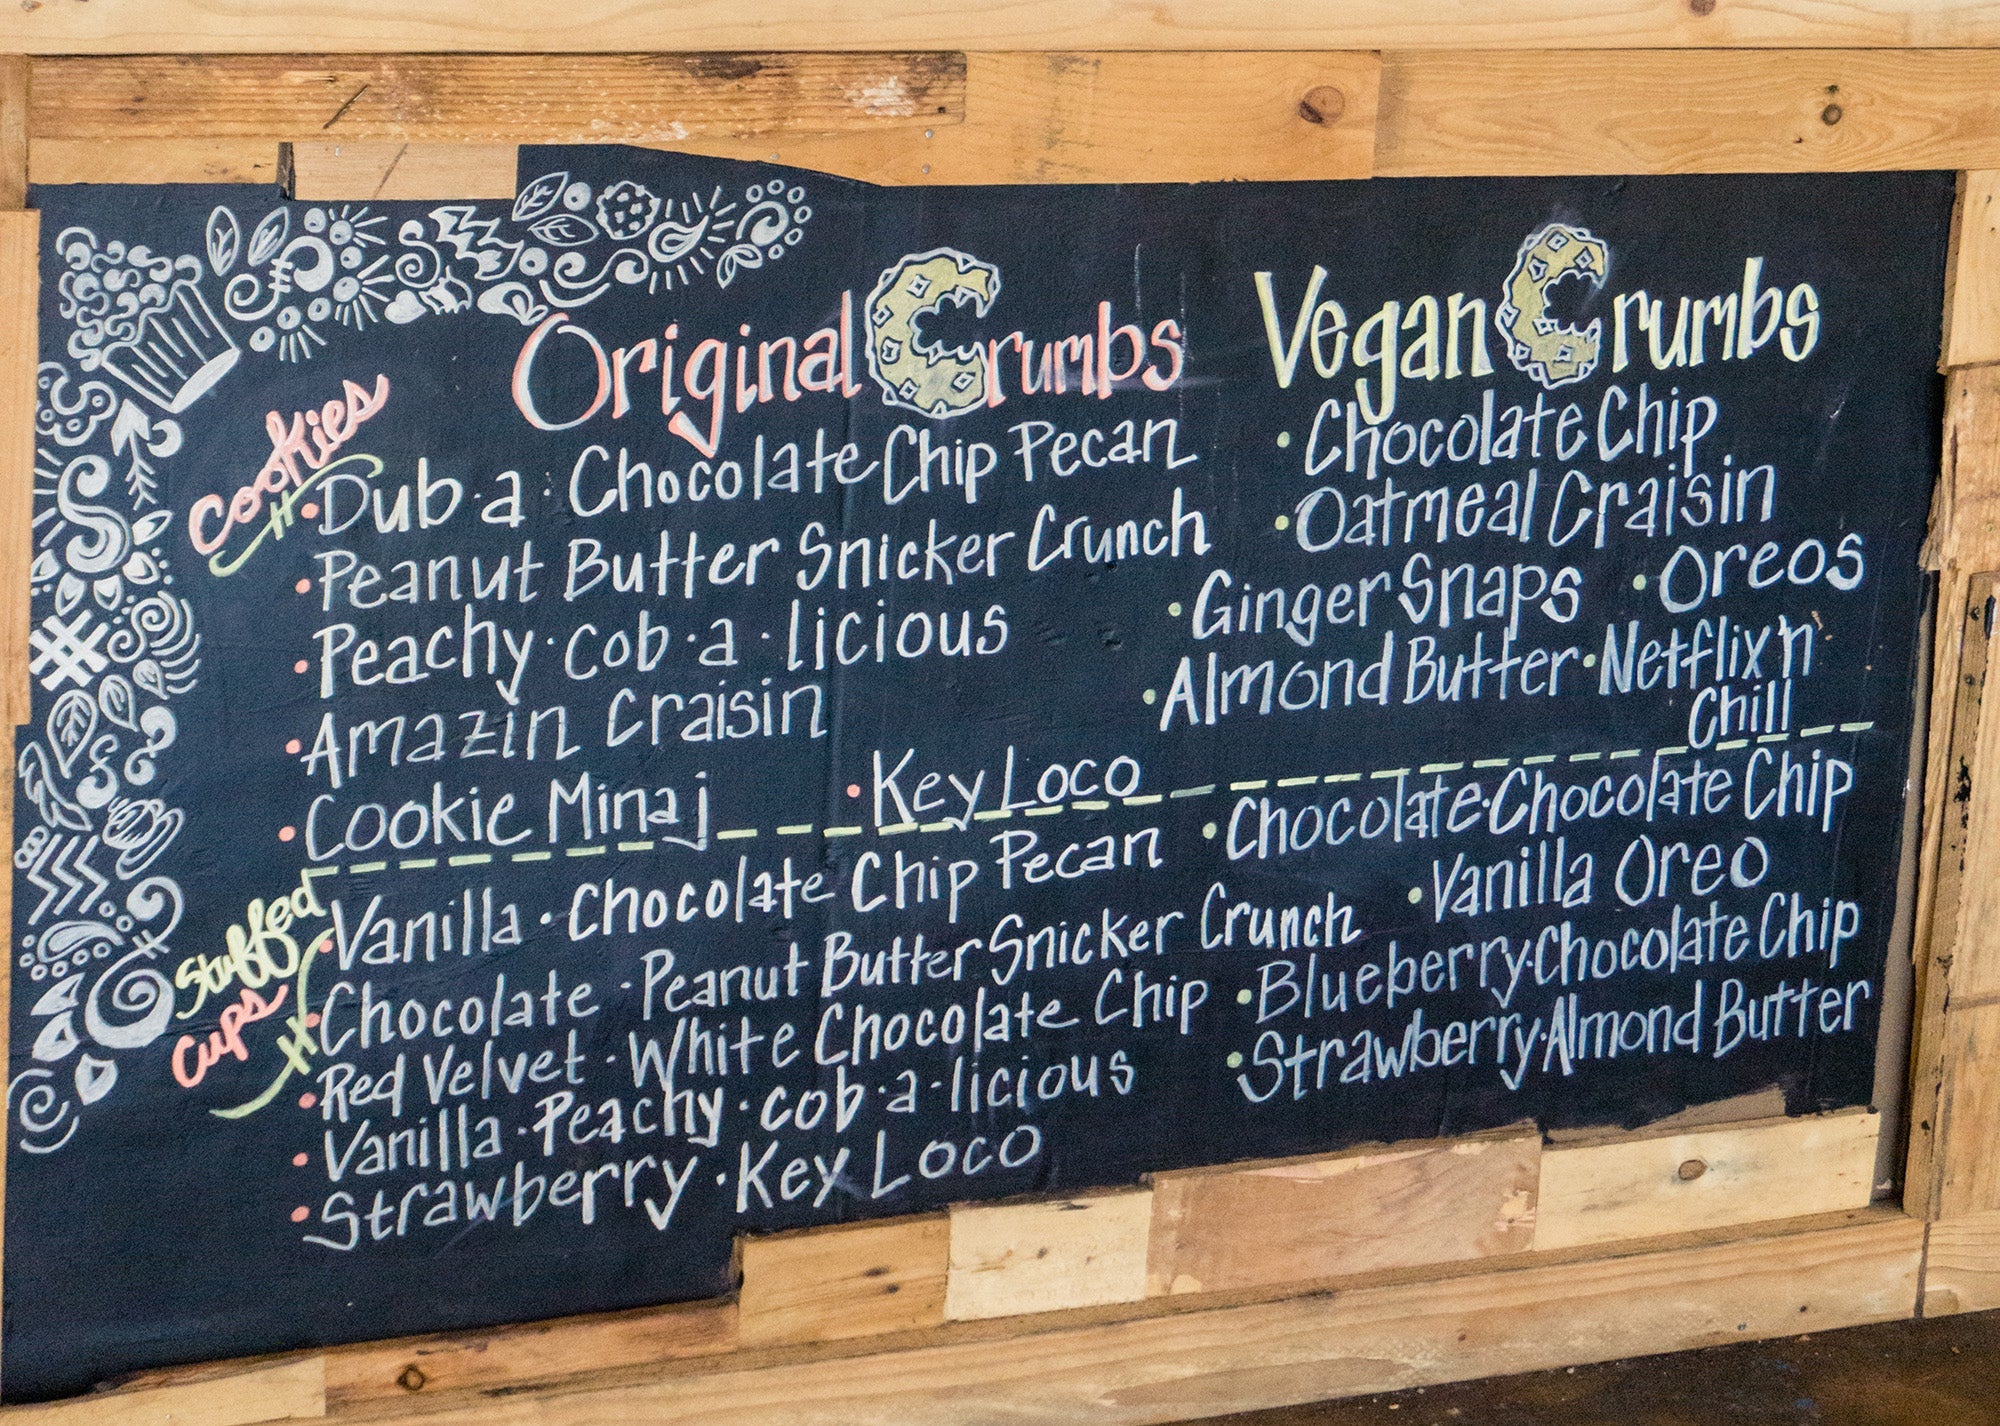 Original Crumbs
Cookies
• Dub · a · Chocolate Chip Pecan
• Peanut Butter Snicker Crunch
• Peachy · cob · a · licious
• Amazin Craisin
• Cookie Minaj • Key Loco
Stuffed
Cups
• Vanilla · Chocolate Chip Pecan
• Chocolate · Peanut Butter Snicker Crunch
• Red Velvet · White Chocolate Chip
• Vanilla · Peachy · cob · a · licious
• Strawberry · Key Loco
Vegan Crumbs
• Chocolate Chip
• Oatmeal Craisin
• Ginger Snaps • Oreos
• Almond Butter • Netflix 'n
Chill
• Chocolate · Chocolate Chip
• Vanilla Oreo
• Blueberry · Chocolate Chip
• Strawberry · Almond Butter
#